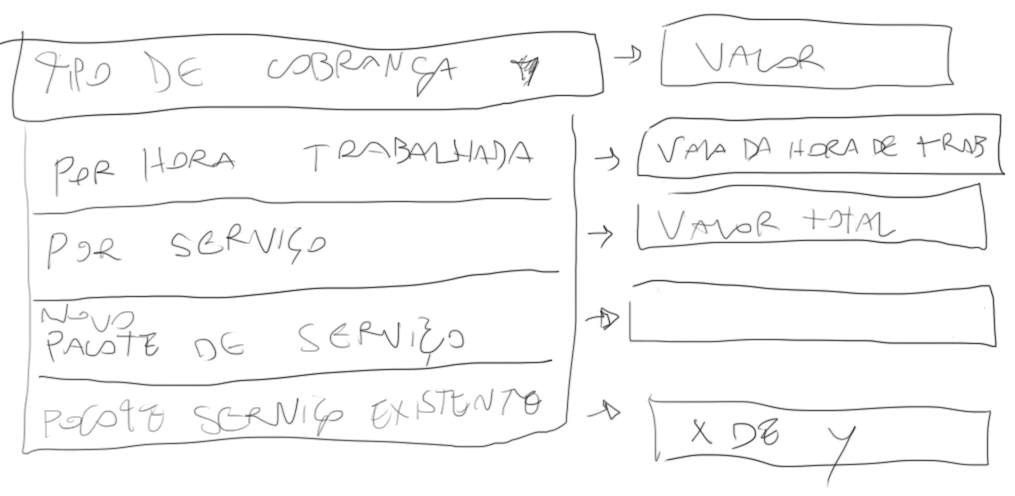 TIPO DE COBRANÇA
VALOR
POR HORA TRABALHADA
VALA DA HORA DE TRAB
POR SERVIÇO
VALOR TOTAL
NOVO
PACOTE DE SERVIÇO
POCOTE SERVIÇO EXISTENTE
X DE Y